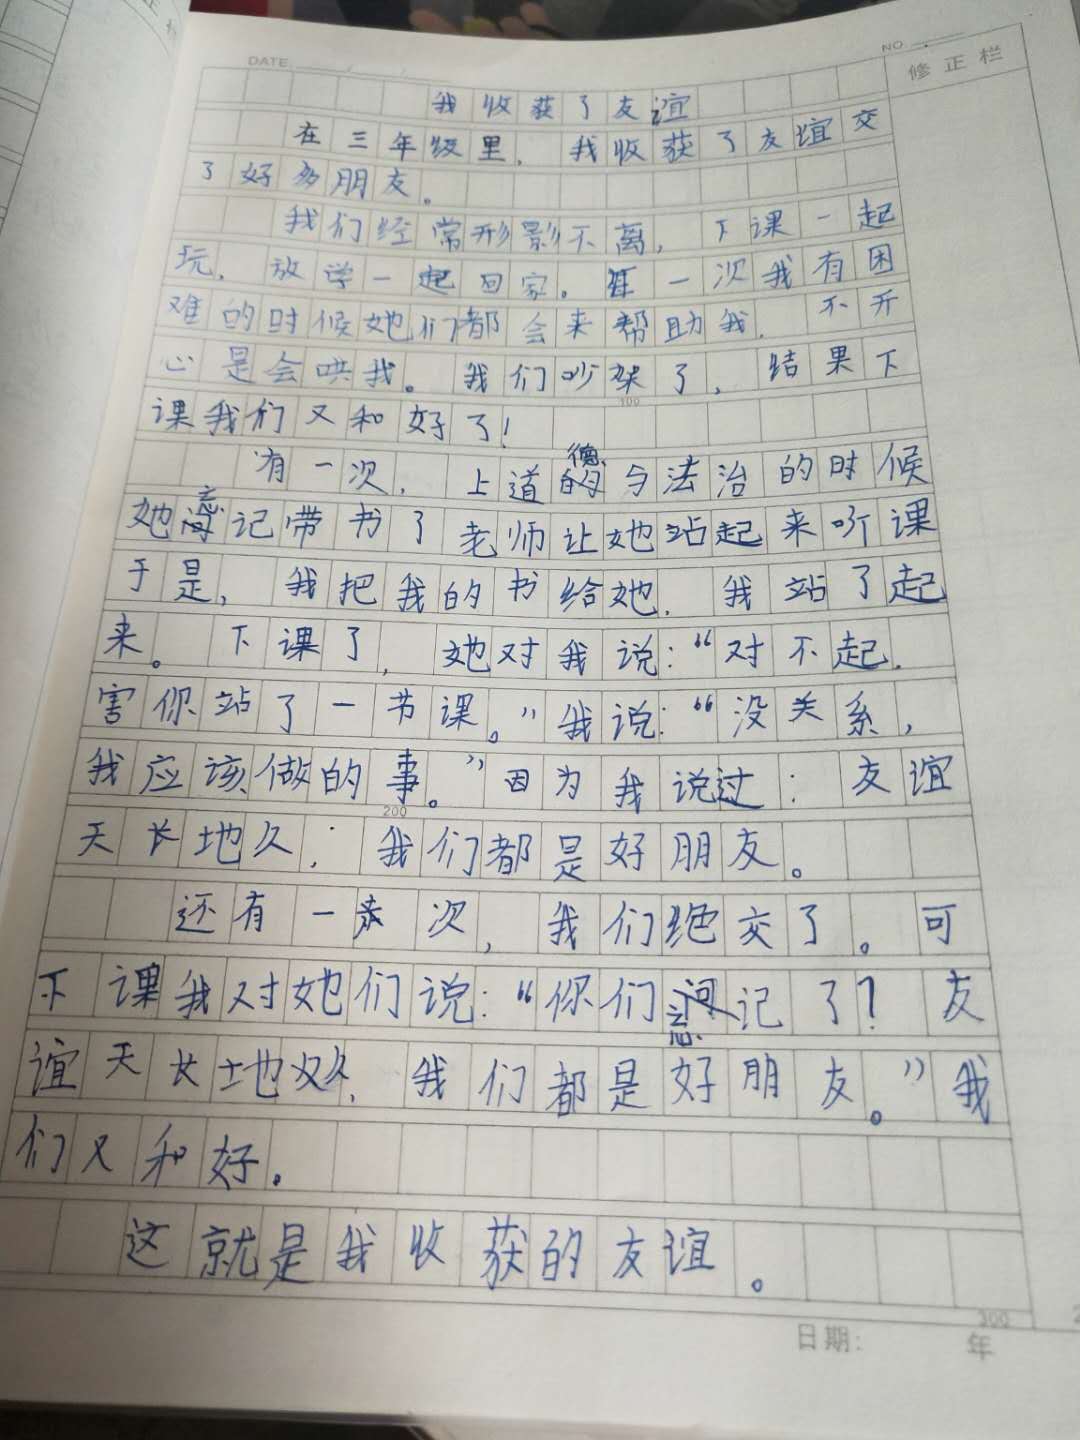 DATE
NO
修正栏
我收获了友谊
在三年级里，我收获了友谊交
了好多朋友。
我们经常形影不离，下课一起
玩，放学一起回家。在一次我有困
难的时候她们都会来帮助我，不开
心是会哄我。我们吵架了，结果下
100
课我们又和好了！
有一次，上道德与法治的时候
她忘记带书了老师让她站起来听课
于是，我把我的书给她，我站了起
来。下课了，她对我说：“对不起，
害你站了一节课。”我说：“没关系，
我应该做的事。”因为我说过：友谊
200
天长地久，我们都是好朋友。
还有一次，我们绝交了。可
下课我对她们说：“你们忘记了？友
谊天长地久，我们都是好朋友。”我
们又和好。
这就是我收获的友谊。
300
日期： 年